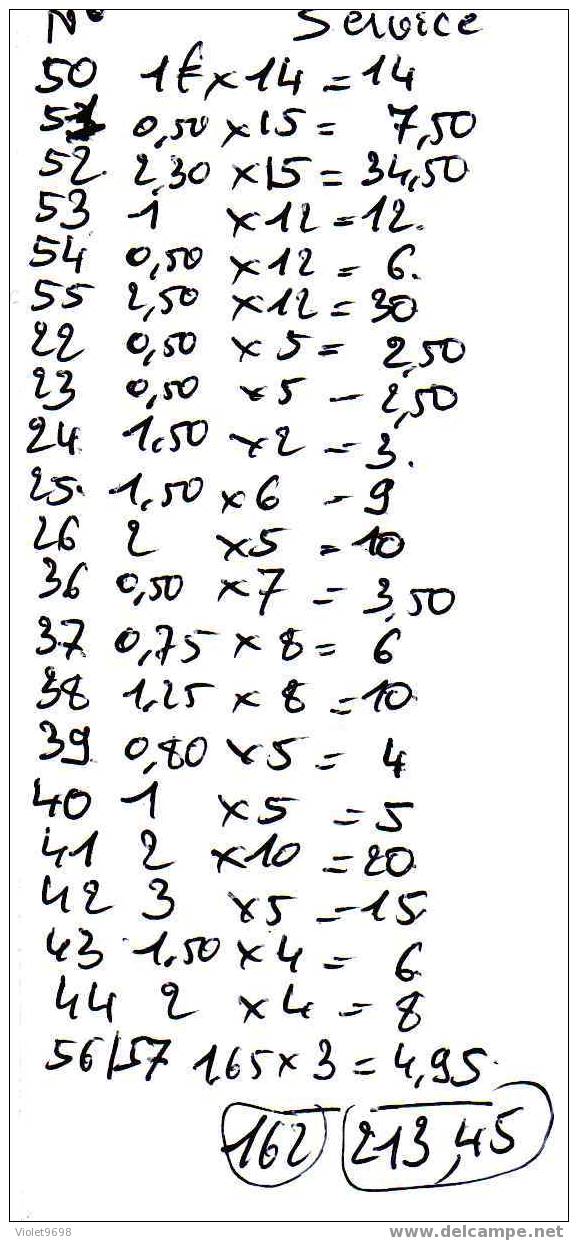 N° Service
50 1€ x 14 = 14
51 0,50 x 15 = 7,50
52. 2,30 x 15 = 34,50
53 1 x 12 = 12.
54 0,50 x 12 = 6.
55 2,50 x 12 = 30
22 0,50 x 5 = 2,50
23 0,50 x 5 - 2,50
24 1.50 x 2 = 3.
25. 1,50 x 6 = 9
26 2 x 5 = 10
36 0,50 x 7 = 3,50
37 0,75 x 8 = 6
38 1,25 x 8 = 10
39 0,80 x 5 = 4
40 1 x 5 = 5
41 2 x 10 = 20
42 3 x 5 = 15
43 1.50 x 4 = 6
44 2 x 4 = 8
56/57 1,65 x 3 = 4,95.
162 213,45
Violet9698 www.delcampe.net